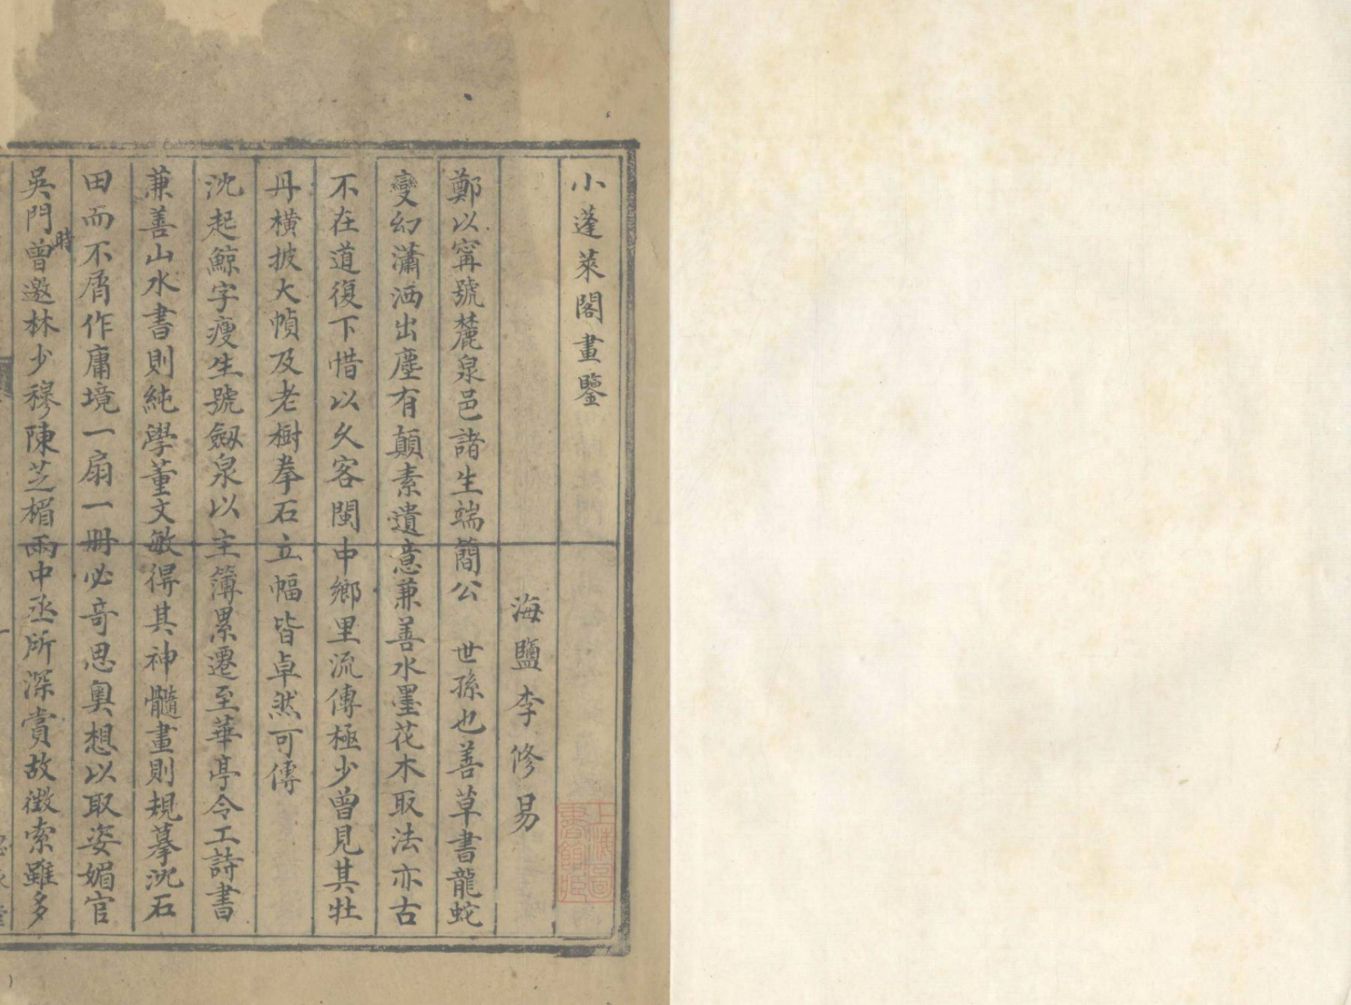 小蓬萊閣畫鑒
海鹽李修易
鄭以寗號麓泉邑諸生端簡公　世孫也善草書龍蛇
變幻瀟洒出塵有顛素遺意兼善水墨花木取法亦古
不在道復下惜以久客閩中鄉里流傳極少曾見其牡
丹橫披大幀及老樹拳石立幅皆卓然可傳
沈起鯨字瘦生號劔泉以主簿累遷至華亭令工詩書
兼善山水書則純學董文敏得其神髓畫則規摹沈石
田而不屑作庸境一扇一冊必奇思奧想以取姿媚官
吳門時曾邀林少穆陳芝楣兩中丞所深賞故徵索雖多
上海圖書館藏